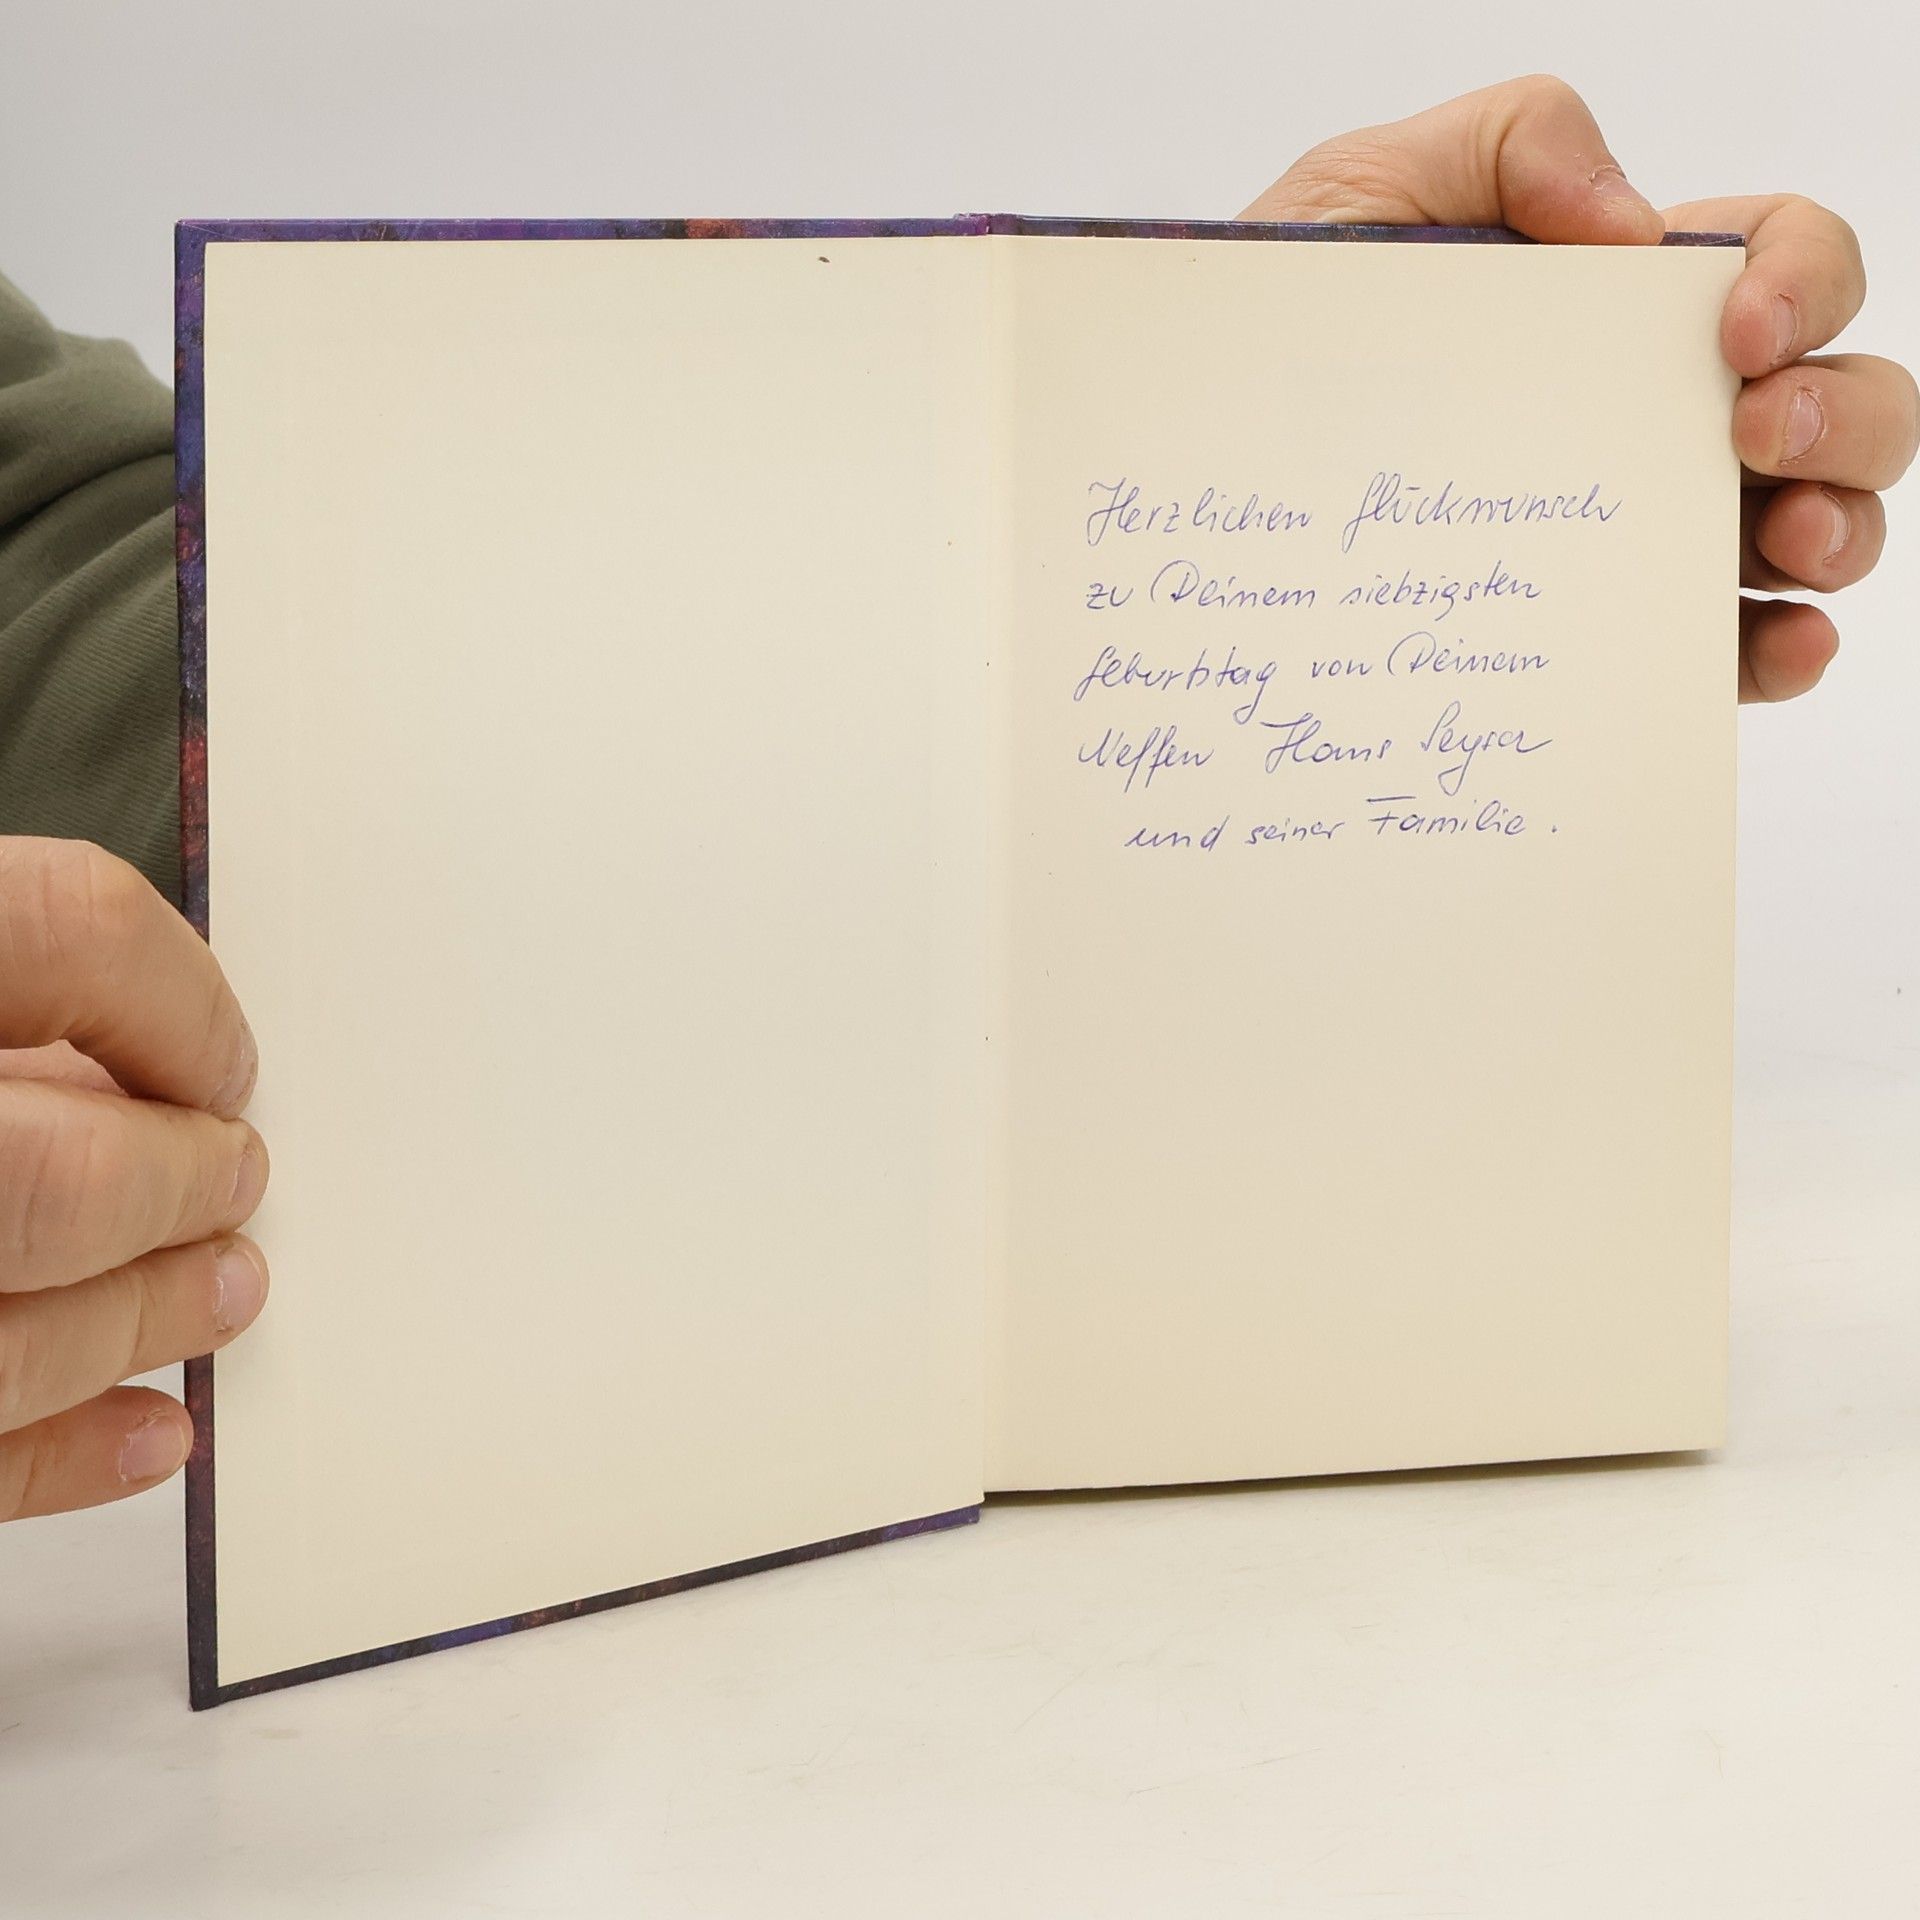 Herzlichen Glückwunsch
zu Deinem siebzigsten
Geburtstag von Deinem
Neffen Hans
und seiner Familie.